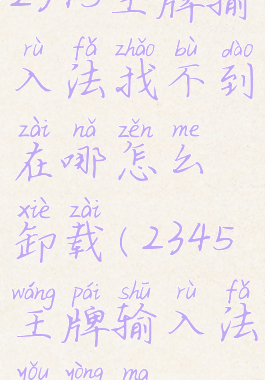 2345王牌输
rù fǎ zhǎo bù dào
入法找不到
zài nǎ zěn me
在哪怎么
xiè zài
卸载(2345
wáng pái shū rù fǎ
王牌输入法
yǒu yòng ma